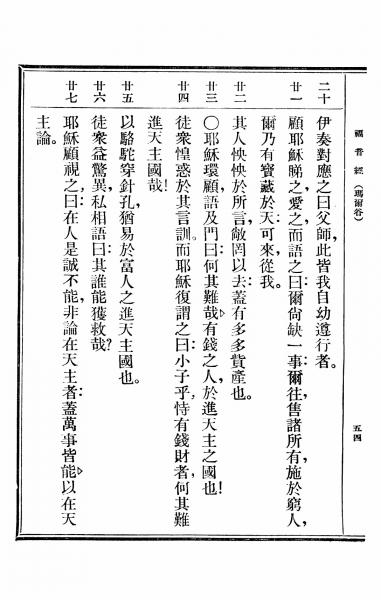 福音經（瑪爾谷）
五四
二十 伊奏對應之曰父師，此皆我自幼遵行者。
廿一 顧耶穌睇之，愛之，而語之曰：爾尙缺一事：爾往，售諸所有，施於窮人，
爾乃有寶藏於天；可來，從我。
廿二 其人怏怏於所言，敵罔以去：蓋有多多貲產也。
廿三 〇耶穌環顧，語及門曰：何其難哉，有錢之人，於進天主之國也！
廿四 徒衆惶惑於其言訓。而耶穌復謂之曰：小子乎，恃有錢財者，何其難
進天主國哉！
廿五 以駱駝穿針孔，猶易於富人之進天主國也。
廿六 徒衆益驚異，私相語曰：其誰能獲救哉？
廿七 耶穌顧視之，曰：在人是誠不能，非論在天主者：蓋萬事皆能，以在天
主論。